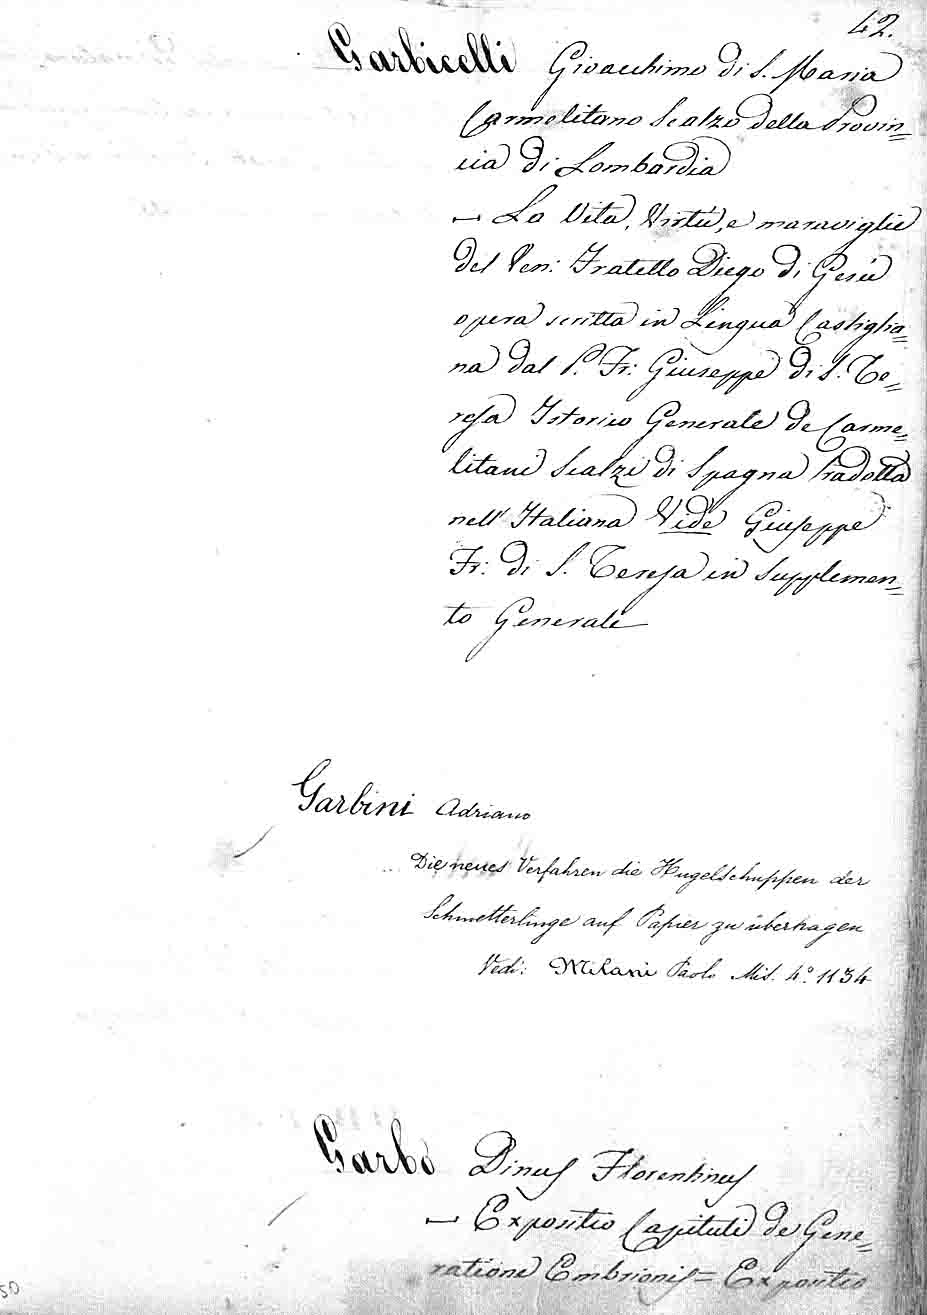 42.
Garbicelli Gioacchimo di S. Maria
Carmelitano Scalzo della Provin=
cia di Lombardia
— La Vita, Virtù, e maraviglie
del Ven: Fratello Diego di Gesù
opera scritta in Lingua Castiglia=
na dal P. Fr: Giuseppe di S. Te=
resa Istorico Generale de Carme=
litani Scalzi di Spagna tradotta
nell' Italiana Vide Giuseppe
Fr: di S. Teresa in Supplemen=
to Generale
Garbini Adriano
Die neues Verfahren die Hugelschuppen der
Schmetterlinge auf Papier zu überhagen
Vedi: Milani Paolo Mis. 4º 1134
Garbo Dinus Florentinus
— Expositio Capituli de Gene=
ratione Embrionis = Expositio
50